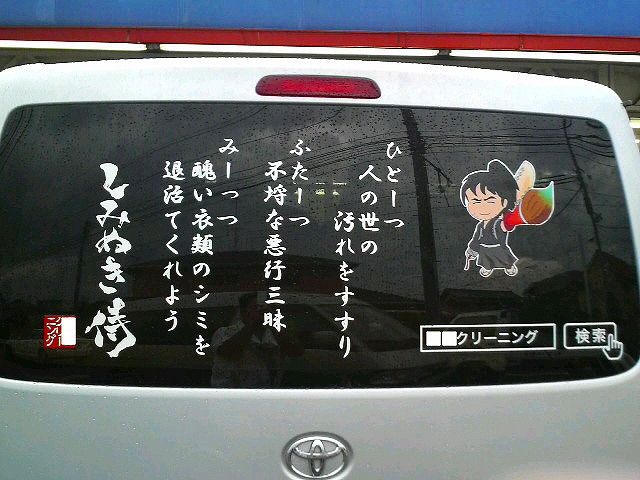 ひとーつ
人の世の
汚れをすすり
ふたーつ
不埒な悪行三昧
みーっつ
醜い衣類のシミを
退治てくれよう
しみぬき侍
クリーニング
検索